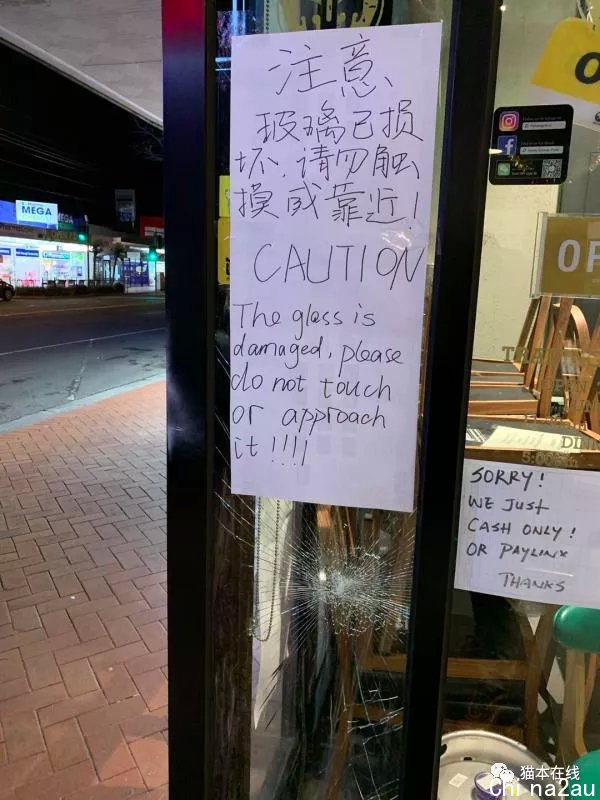 注意
玻璃已损
坏 请勿触
摸或靠近!
CAUTION
The glass is
damaged, please
do not touch
or approach
it !!!!
MEGA
SORRY!
WE JUST
CASH ONLY!
OR PAYLINX
THANKS
猫本在线
chi na2au